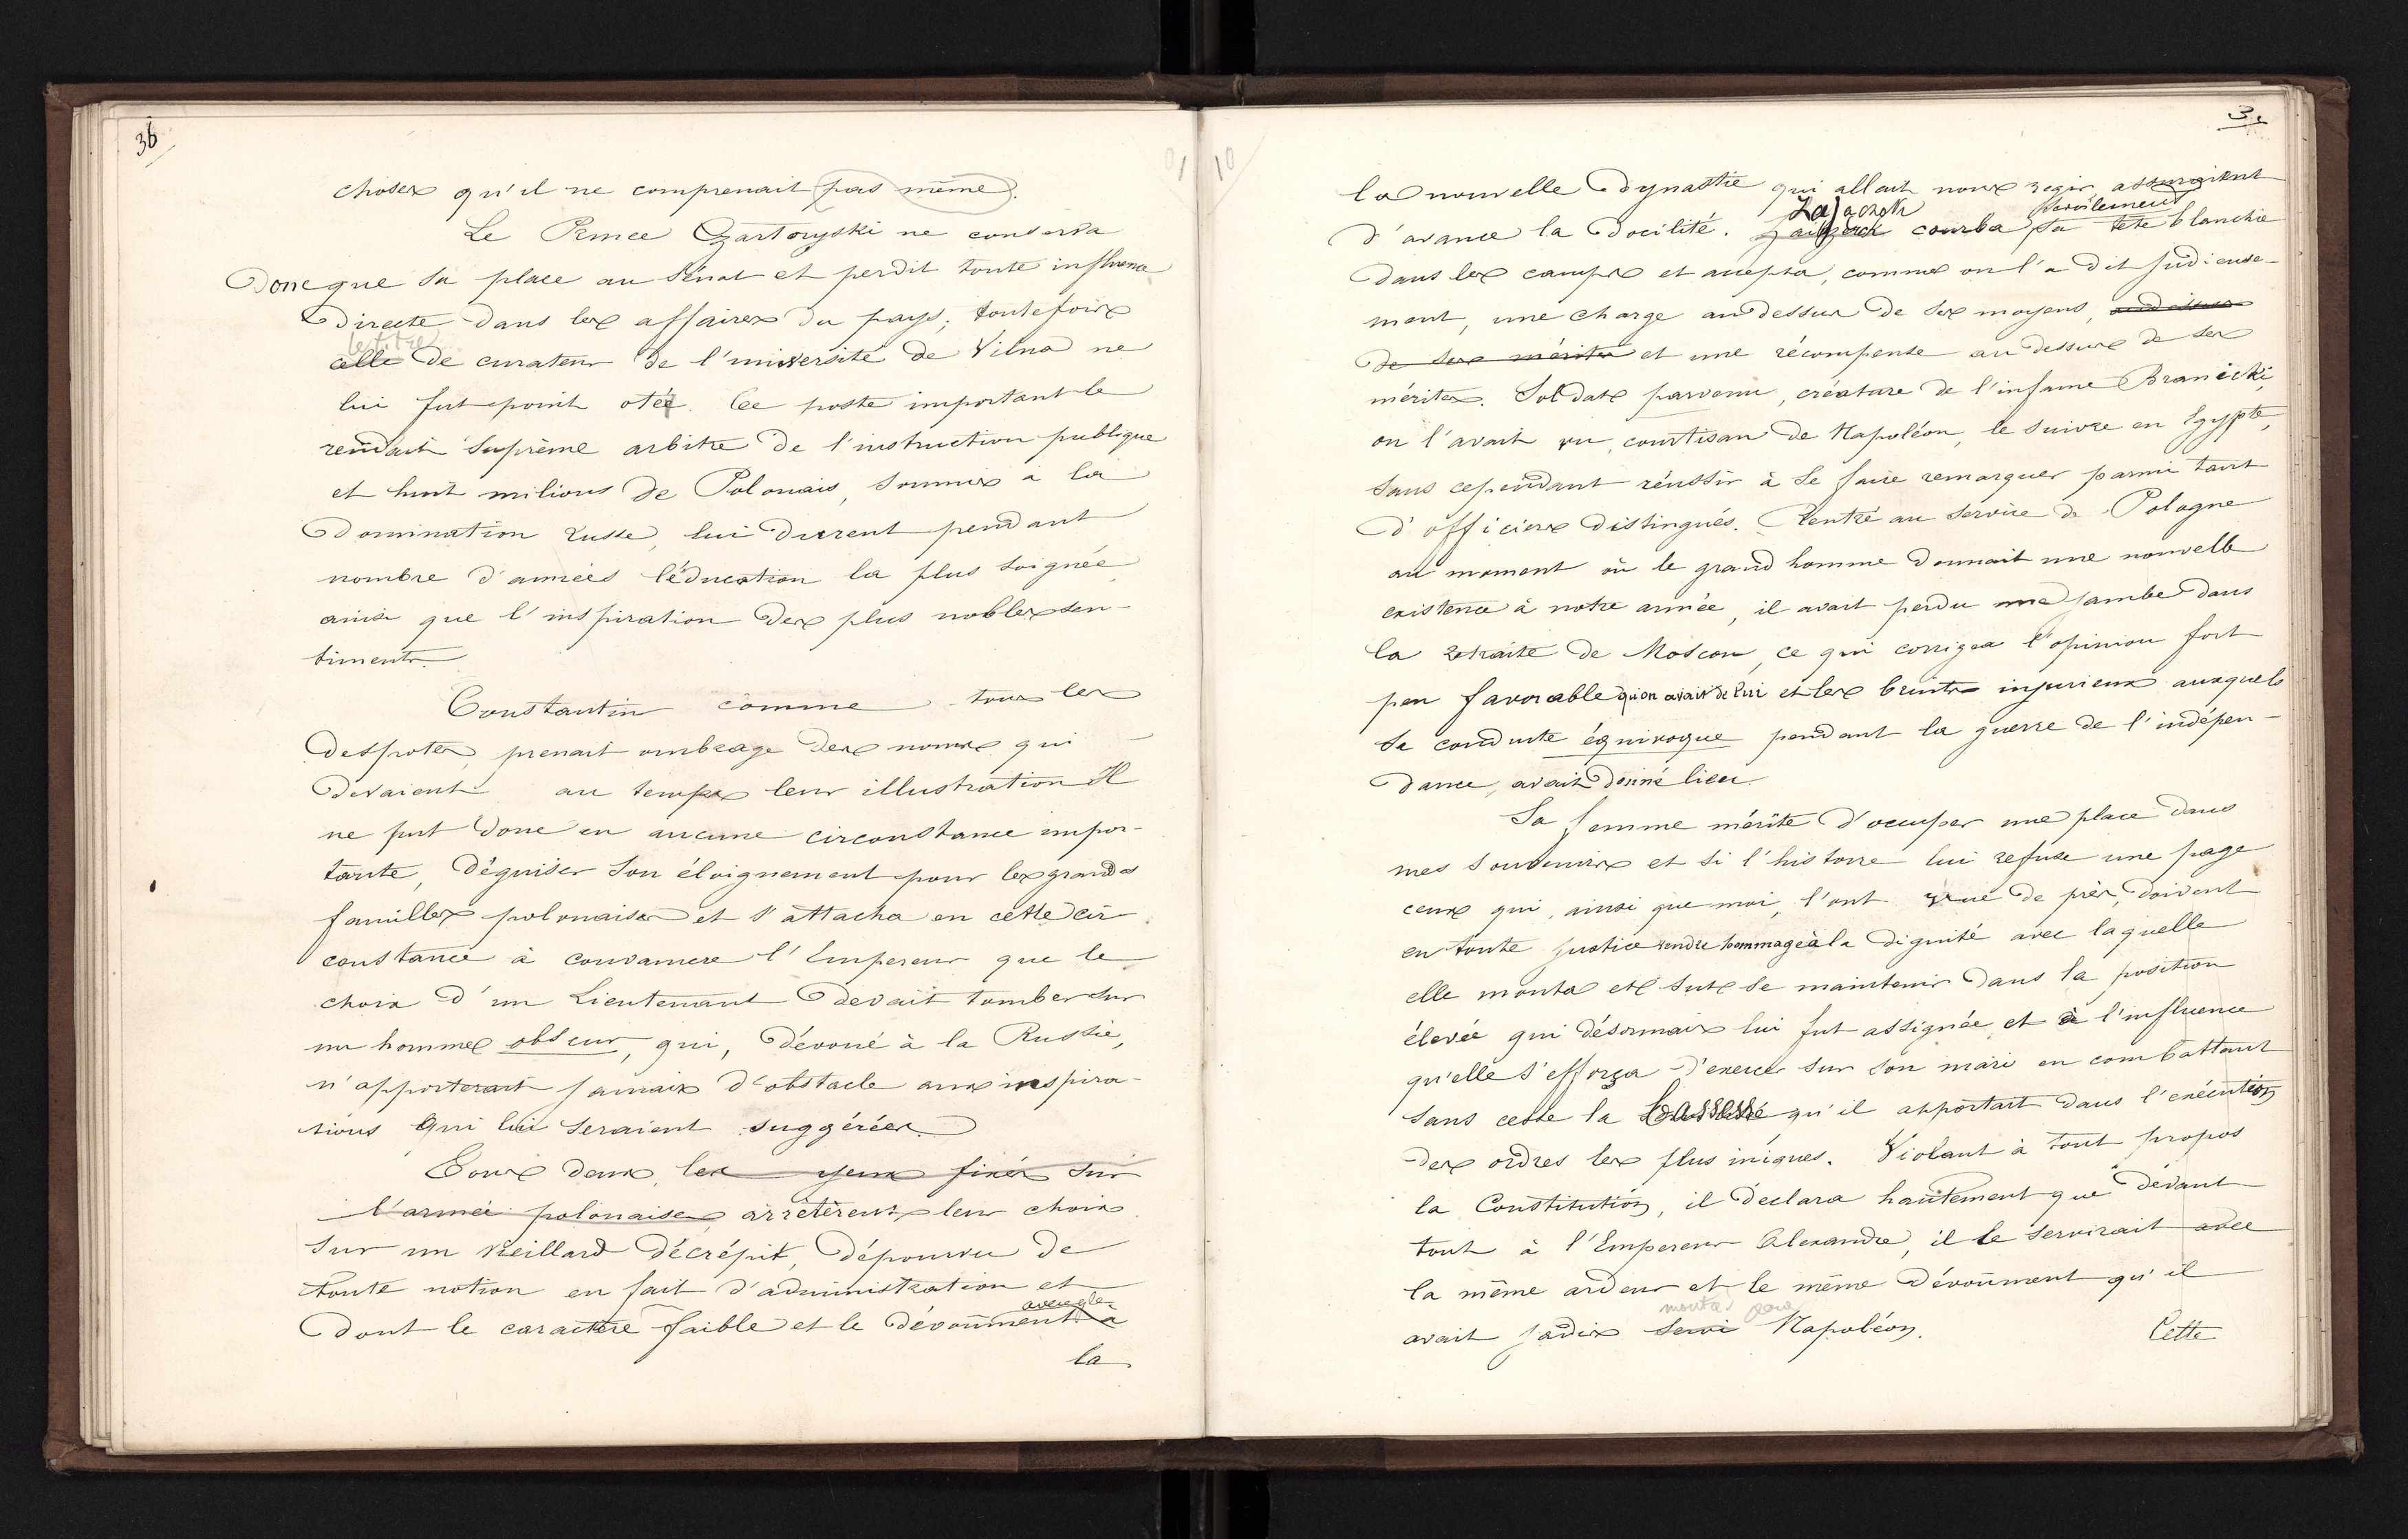 36
choses qu'il ne comprenait pas même.
Le Prince Czartoryski ne conserva
donc que sa place au Sénat et perdit toute influence
directe dans les affaires du pays; toutefois
le titre
celle de curateur de l'université de Vilna ne
lui fut point otée. Ce poste important le
rendait Suprème arbitre de l'instruction publique
et huit milions de Polonais, soumis à la
domination russe, lui durent pendant
nombre d'années l'éducation la plus soignée
ainsi que l'inspiration des plus nobles sen-
timents.
Constantin comme tous les
despotes, prenait ombrage des noms qui
devaient au temps leur illustration Il
ne put donc en aucune circonstance impor-
tante, déguiser son éloignement pour les grandes
familles polonaises et s'attacha en cette cir
constance à convaincre l'Empereur que le
choix d'un Lieutenant devait tomber sur
un homme obscur, qui, dévoué à la Russie,
n'apporterait jamais d'obstacle aux inspira-
tions qui lui seraient suggérées.
Tous deux, les yeux fixés sur
l'armée polonaise, arrêtèrent leur choix
sur un vieillard décrépit, dépourvu de
toute notion en fait d'administration et
aveugle
dont le caractère faible et le dévoûment à
la
10
la nouvelle dynastie qui allait nous régir, assuraient
Zajączek servilement
d'avance la docilité. Zaionczek courba sa tête blanchie
dans les camps et accepta, comme on l'a dit judicieuse-
ment, une charge au dessus de ses moyens, au dessus
de ses mérites et une récompense au dessus de ses
mérites. Soldat parvenu, créature de l'infame Branicki,
on l'avait vu, courtisan de Napoléon, le suivre en Egypte,
sans cependant réussir à se faire remarquer parmi tant
d'officiers distingués. Rentré au service de Pologne
au moment où le grand homme donnait une nouvelle
existence à notre armée, il avait perdu une jambe dans
la retraite de Moscou, ce qui corrigea l'opinion fort
peu favorable qu'on avait de lui et les bruits injurieux auxquels
sa conduite équivoque pendant la guerre de l'indépen-
dance, avait donné lieu.
Sa femme mérite d'occuper une place dans
mes souvenirs et si l'histoire lui refuse une page
ceux qui, ainsi que moi, l'ont vue de près, doivent
en toute justice rendre hommage à la dignité avec laquelle
elle monta et sut se maintenir dans la position
élevée qui désormais lui fut assignée et à l'influence
qu'elle s'efforça d'exercer sur son mari en combattant
sans cesse la bassesse qu'il apportait dans l'exécution
des ordres les plus iniques. Violant à tout propos
la Constitution, il déclara hautement que devant
tout à l'Empereur Alexandre, il le servirait avec
la même ardeur et le même dévoûment qu'il
montas pour
avait jadis servi Napoléon.
Cette